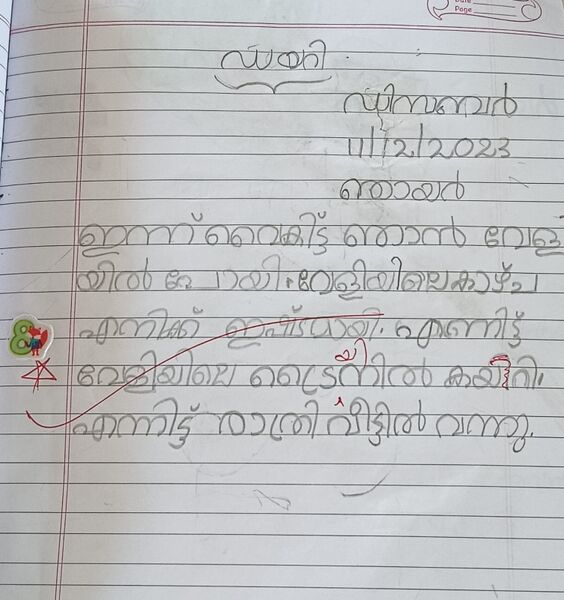 Date
Page
ഡയറി
ഡിസംബർ
11/12/2023
ഞായർ
ഇന്ന് വൈകിട്ട് ഞാൻ വേള
യിൽ പോയി. വേളിയിലെ കാഴ്ച
എനിക്ക് ഇഷ്ടമായി. എന്നിട്ട്
വേളിയിലെ ട്രെയിനിൽ കയറി.
എന്നിട്ട് രാത്രി വീട്ടിൽ വന്നു.